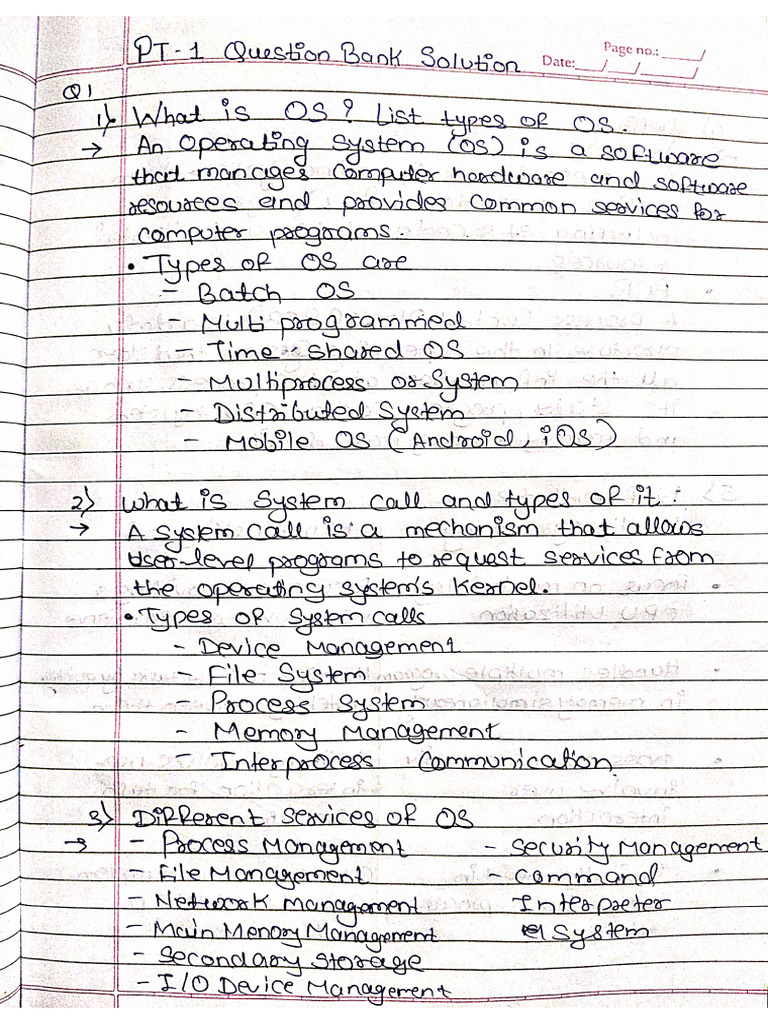 PT-1 Question Bank Solution
Page no.: ___/
Date: __/__/____/
Q1
1) What is OS? List types of OS.
→ An Operating System (OS) is a software
that manages computer hardware and software
resources and provides common services for
computer programs.
• Types of OS are
- Batch OS
- Multi programmed
- Time - shared OS
- Multiprocess or System
- Distributed System
- Mobile OS (Android, iOS)
2) What is System call and types of it :
→ A system call is a mechanism that allows
User-level programs to request services from
the operating system's Kernel.
• Types of System calls
- Device Management
- File System
- Process System
- Memory Management
- Interprocess Communication.
3) Different Services of OS
→ - Process Management
- File Management
- Network management
- Main Menory Management
- Secondary Storage
- I/O Device Management
- Security Management
- Command
Interpreter
System